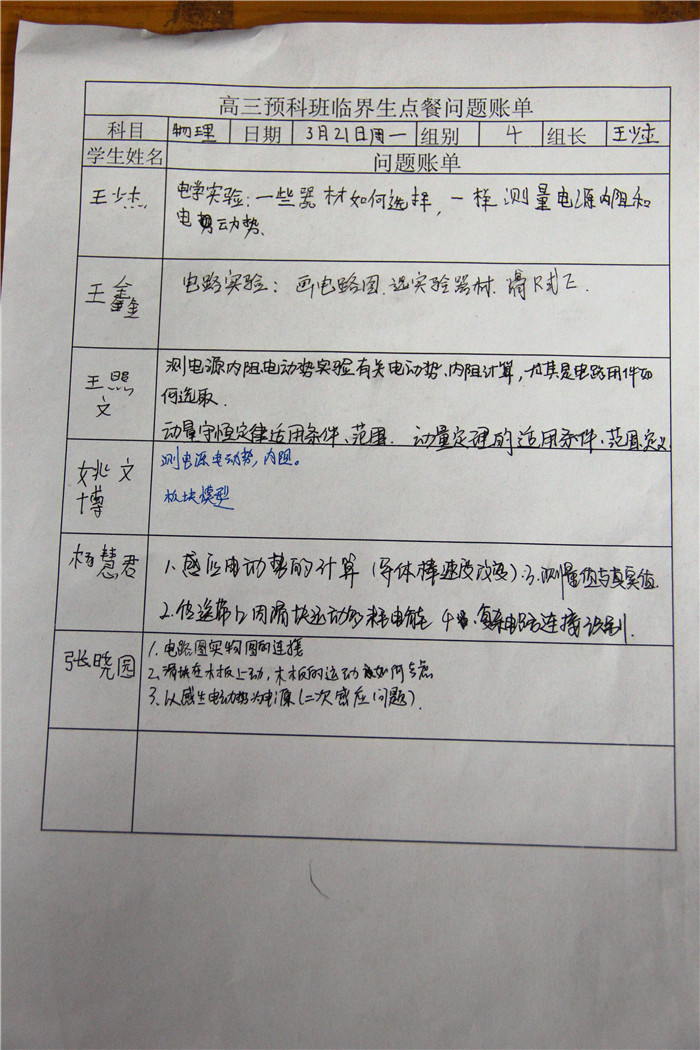 高三预科班临界生点餐问题账单
科目 物理 日期 3月21日周一 组别 4 组长 王少杰
学生姓名 问题账单
王少杰
电学实验：一些器材如何选择，一样测量电源内阻和
电动势.
王鑫
电路实验：画电路图.选实验器材.
王照
文
测电源内阻、电动势实验有关电动势、内阻计算，尤其是电路用件如
何选取.
动量守恒定律适用条件、范围. 动量定理的适用条件、范围、定义.
姚文
博
测电源电动势，内阻。
板块模型
杨慧君
1.感应电动势的计算（导体棒速度改变）3.测量值与真实值.
2.传送带上因滑块运动多耗电能 4.复杂电路连接识别.
张晓园
1.电路图实物图的连接
2.滑块在木板上动，木板的运动如何考虑
3.以感生电动势为电源(二次感应问题).